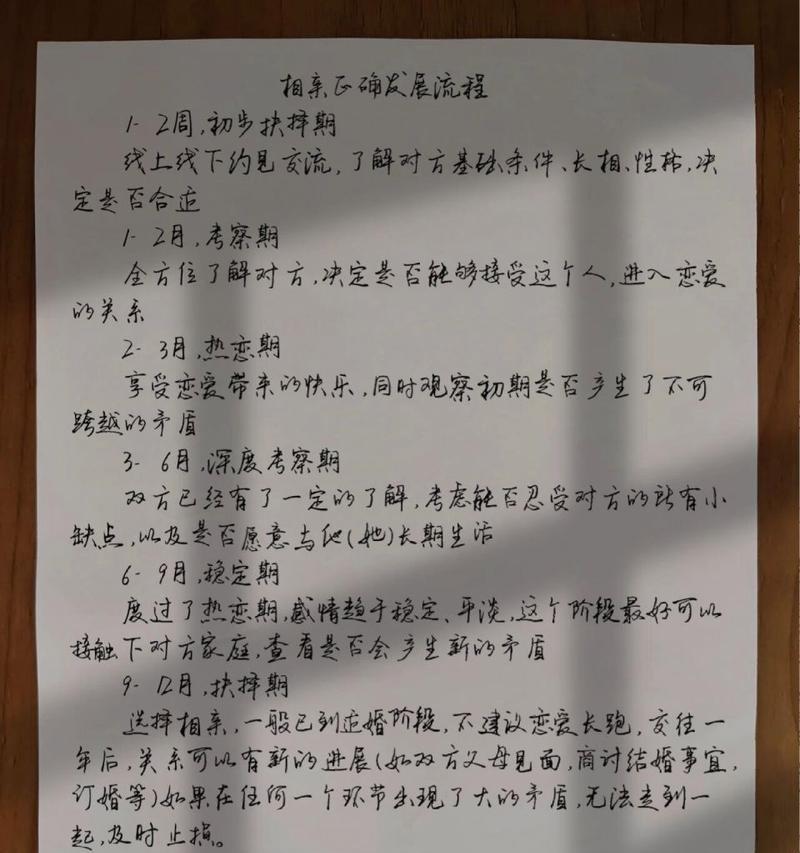 相亲正确发展流程
1-2周,初步抉择期
线上线下约见交流,了解对方基础条件、长相、性格,决
定是否合适
1-2月,考察期
全方位了解对方,决定是否能够接受这个人,进入恋爱
的关系
2-3月,热恋期
享受恋爱带来的快乐,同时观察初期是否产生了不可
跨越的矛盾
3-6月,深度考察期
双方已经有了一定的了解,考虑能否忍受对方的所有小
缺点,以及是否愿意与他(她)长期生活
6-9月,稳定期
度过了热恋期,感情趋于稳定、平淡,这个阶段最好可以
接触下对方家庭,查看是否会产生新的矛盾
9-12月,抉择期
选择相亲,一般已到适婚阶段,不建议恋爱长跑,交往一
年后,关系可以有新的进展(如双方父母见面,商讨结婚事宜,
订婚等)如果在任何一个环节出现了大的矛盾,无法走到一
起,及时止损。